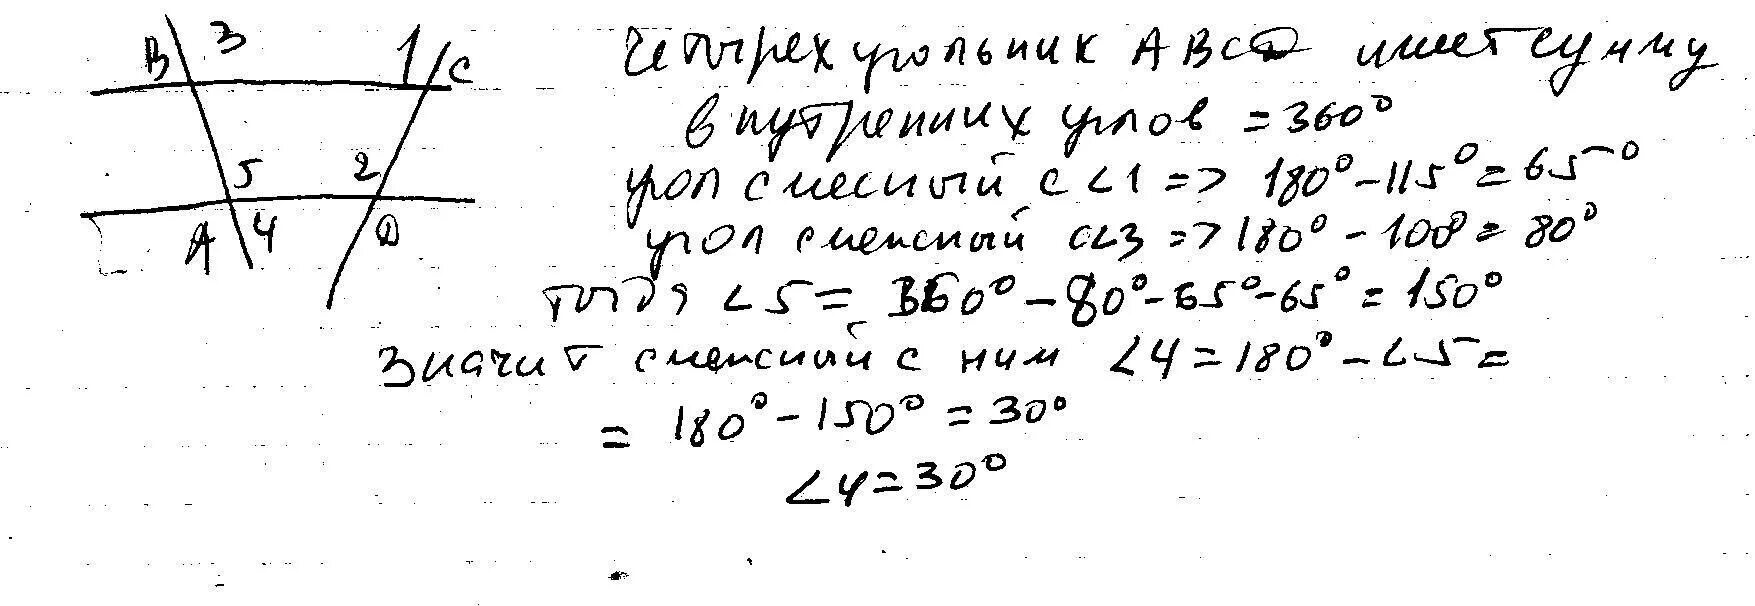 B 3 1 C
5 2
A 4 D
четырехугольник ABCD имеет сумму
внутренних углов = 360°
угол смесный с <1 => 180° - 115° = 65°
угол смежный с <3 => 180° - 100 = 80°
тогда <5 = 360° - 80° - 65° - 65° = 150°
значит смежный с ним <4 = 180° - <5 =
= 180° - 150° = 30°
<4 = 30°